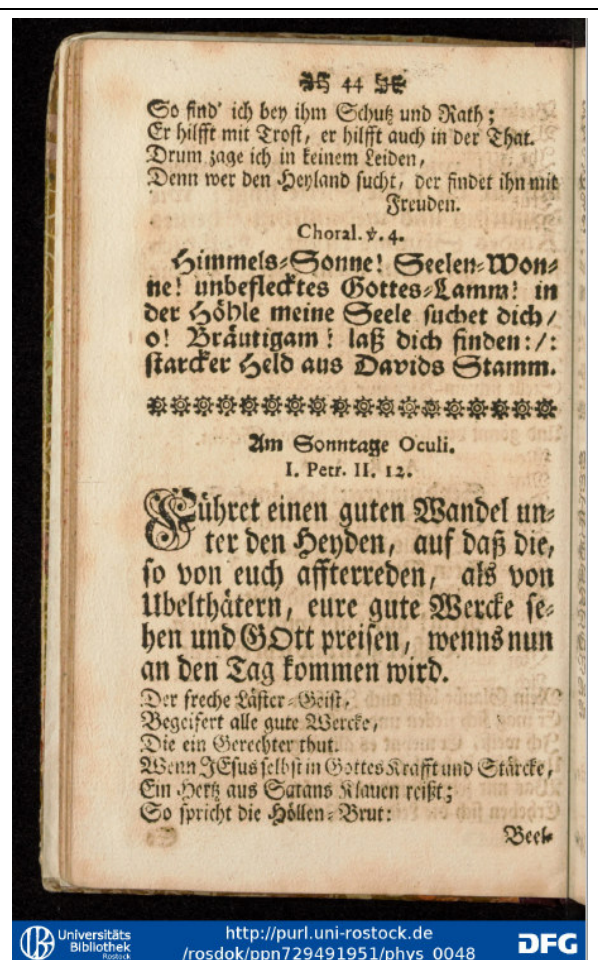 44
So find' ich bey ihm Schutz und Rath;
Er hilfft mit Trost, er hilfft auch in der That.
Drum zage ich in keinem Leiden,
Denn wer den Heyland sucht, der findet ihn mit
Freuden.
Choral. v. 4.
Himmels-Sonne! Seelen-Won-
ne! unbeflecktes Gottes-Lamm! in
der Höhle meine Seele suchet dich/
o! Bräutigam! laß dich finden:/:
starcker Held aus Davids Stamm.
Am Sonntage Oculi.
I. Petr. II. 12.
Führet einen guten Wandel un-
ter den Heyden, auf daß die,
so von euch affterreden, als von
Ubelthätern, eure gute Wercke se-
hen und GOtt preisen, wenns nun
an den Tag kommen wird.
Der freche Läster-Geist,
Begeifert alle gute Wercke,
Die ein Gerechter thut.
Wenn JEsus selbst in Gottes Krafft und Stärcke,
Ein Hertz aus Satans Klauen reißt;
So spricht die Höllen-Brut:
Beel-
Universitäts
Bibliothek
Rostock
http://purl.uni-rostock.de
/rosdok/ppn729491951/phys_0048
DFG